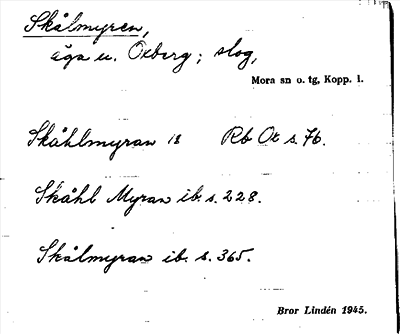 Skålmyren,
äga u. Oxberg; slog,
Mora sn o. tg, Kopp. l.
Skåhlmyran 18 Rb Ox s. 76.
Skåhl Myran ib. s. 228.
Skålmyran ib. s. 365.
Bror Lindén 1945.